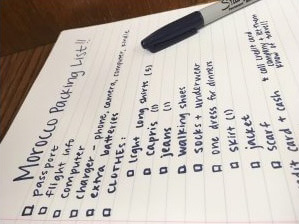 Morocco Packing List!!
passport
flight info
computer
charger - phone, camera, computer, kindle
extra batteries
CLOTHES:
light long shirts (5)
capris (1)
jeans (1)
walking shoes
socks + underwear
one dress for dinners
skirt (1)
jacket
scarf
card + cash
+ call credit card
company + let them
know of travel!